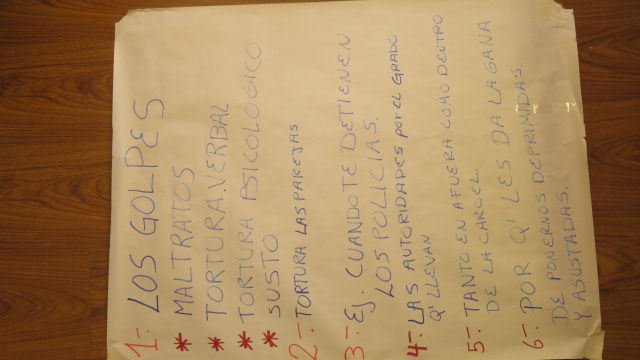 1- LOS GOLPES
* MALTRATOS
* TORTURA.VERBAL
* TORTURA PSICOLOGICO
* SUSTO
2- TORTURA LAS PAREJAS
3- Ej. CUANDO TE DETIENEN
LOS POLICIAS.
4- LAS AUTORIDADES por el GRADO
Q' LLEVAN.
5- TANTO EN AFUERA COMO DENTRO
DE LA CARCEL.
6- POR Q' LES DA LA GANA
DE PONERNOS DEPRIMIDAS.
Y ASUSTADAS.